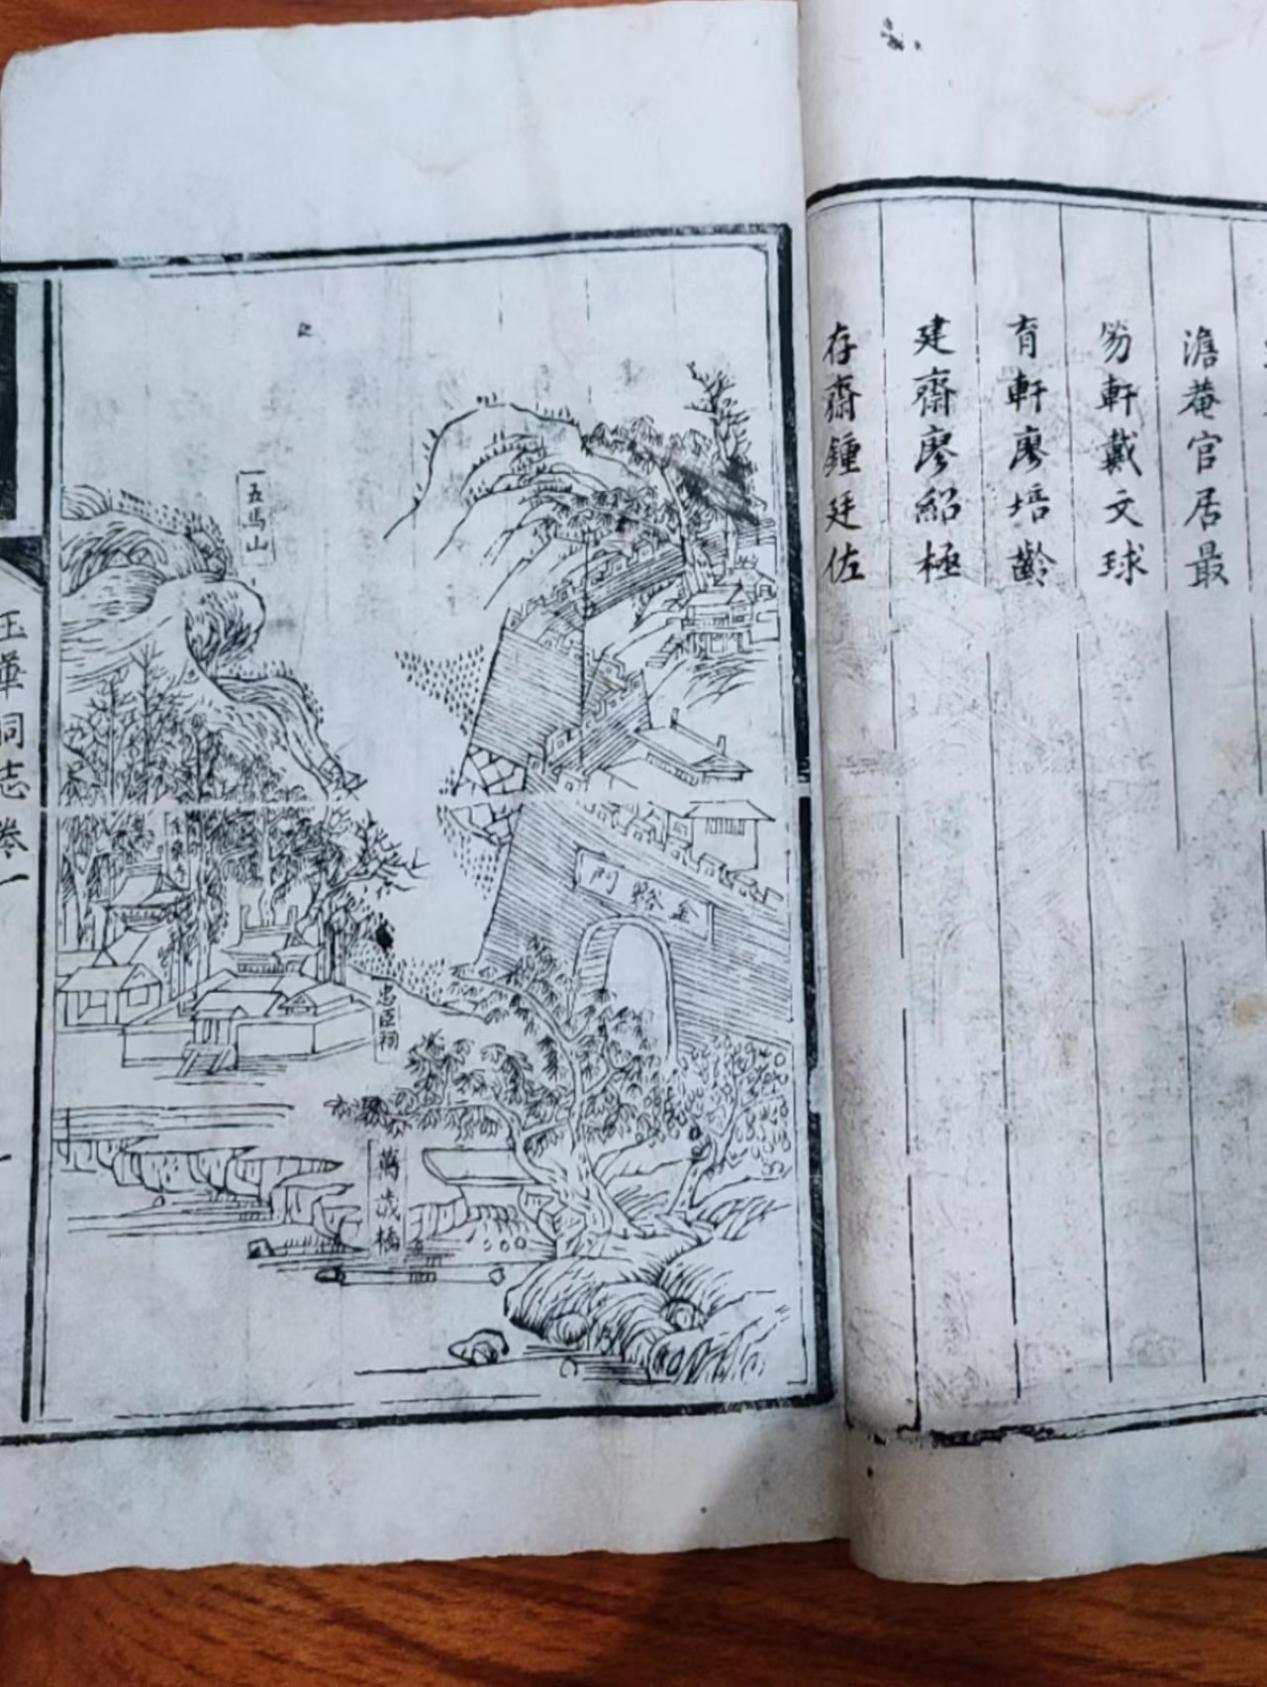 澹菴官居最
笏軒戴文球
育軒廖培齡
建齋廖紹極
存齋鍾廷佐
五馬山
金谿門
忠臣祠
萬歲橋
玉華洞志卷一